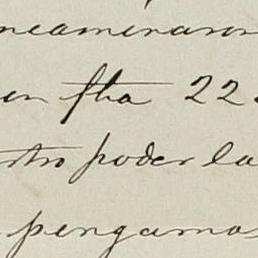 ncaminaron
en fha 22
stro poder la
pengamos